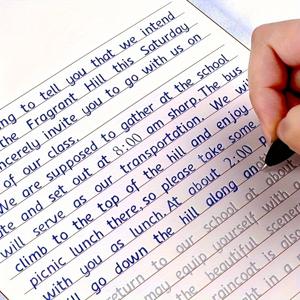 ng to tell you that we intend
the Fragrant Hill this Saturday
ncerely invite you to go with us on
of our class.
We are supposed to gather at the school
te and set out at 8:00 am sharp. The bus
will serve as our transportation. We wi
climb to the top of the hill and enjoy
picnic lunch there, so please take some
with you as lunch. At about 2:00 p
ll go down the hill along an
return to our school at about
may equip yourself with a
the beautiful scener
raincoat is also
ht in a